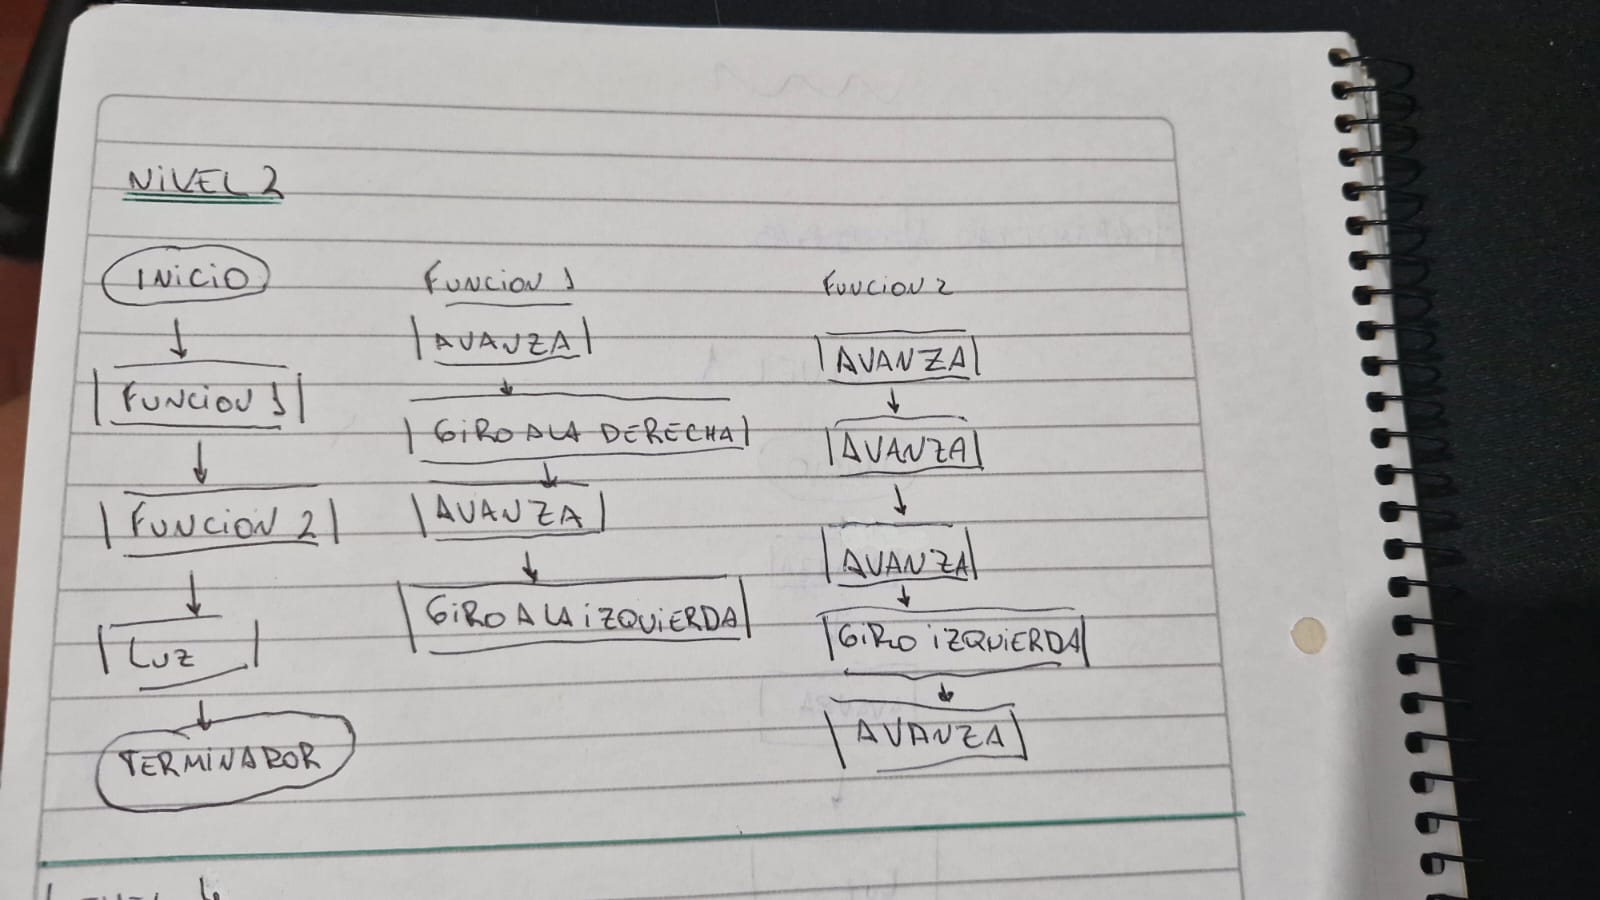 NIVEL 2
INICIO
FUNCION 1
FUNCION 2
LUZ
TERMINADOR
FUNCION 1
AVANZA
GIRO A LA DERECHA
AVANZA
GIRO A LA IZQUIERDA
FUNCION 2
AVANZA
AVANZA
AVANZA
GIRO IZQUIERDA
AVANZA